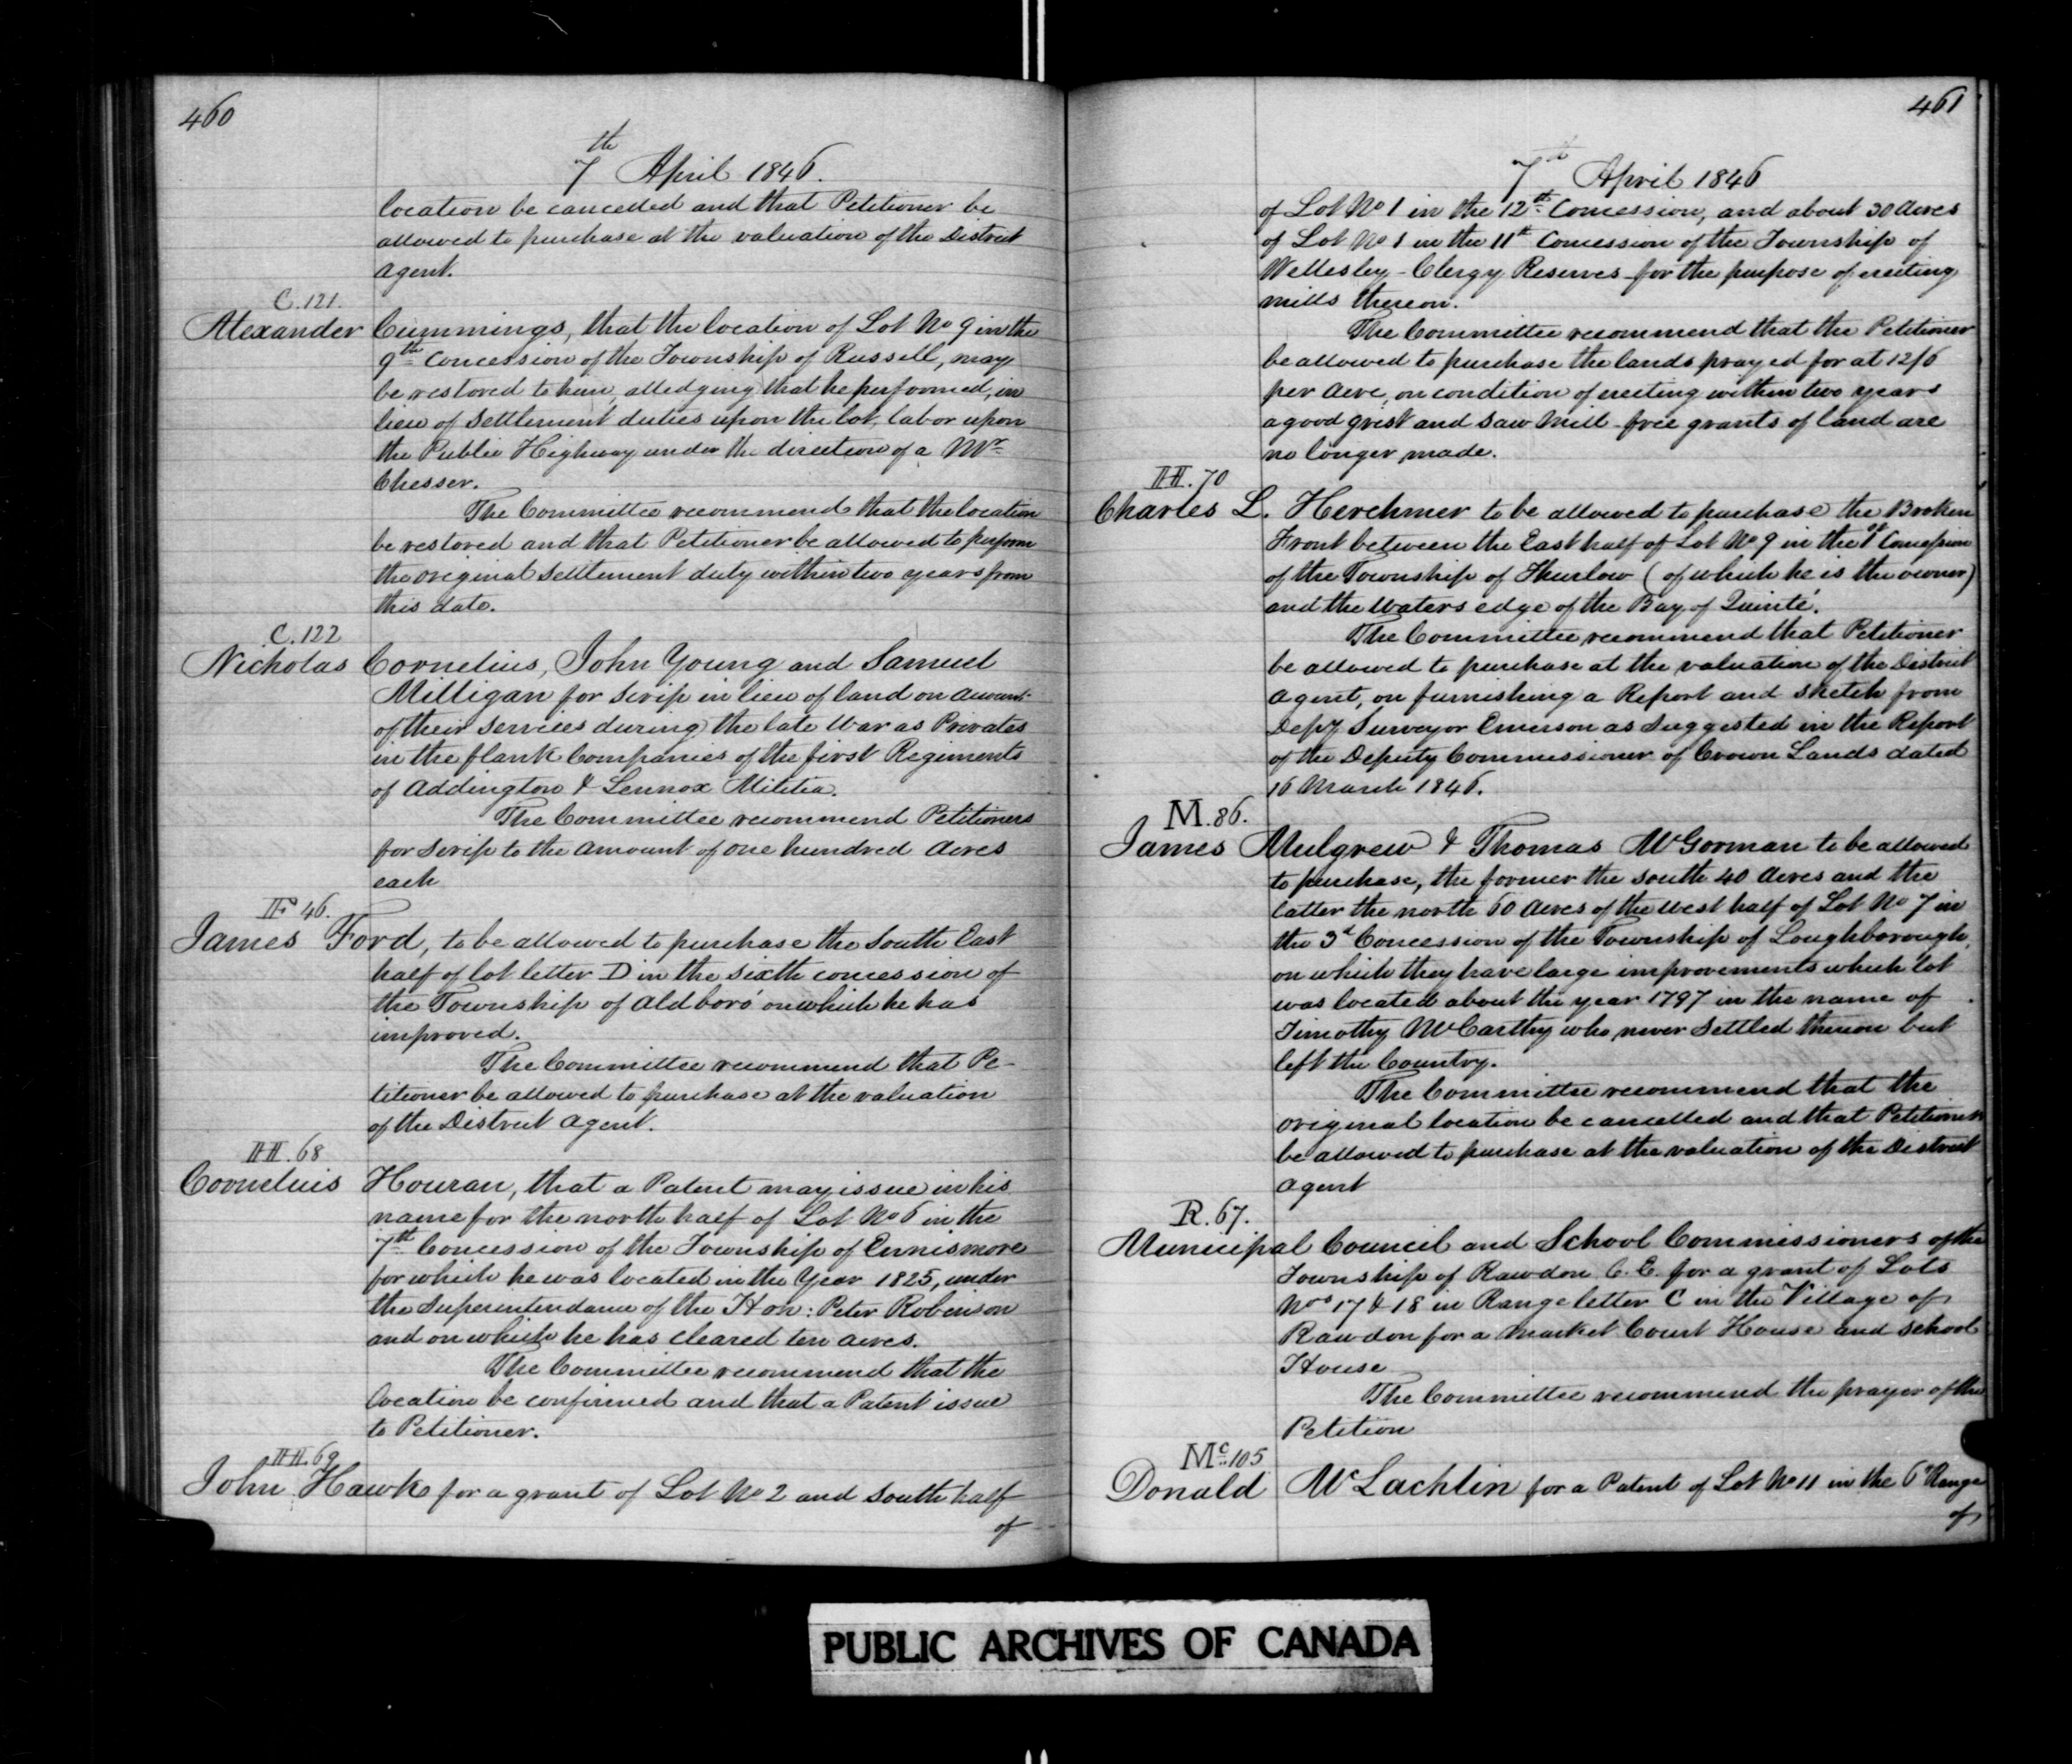 460
7th April 1846.
location be cancelled and that Petitioner be
allowed to purchase at the valuation of the District
Agent.
C. 121.
Alexander Cummings, that the location of Lot No 9 in the
9th Concession of the Township of Russell, may
be restored to him, alledging that he performed, in
lieu of settlement duties upon the lot, labor upon
the Public Highway under the direction of a Mr
Chesser.
The Committee recommend that the location
be restored and that Petitioner be allowed to perform
the original settlement duty within two years from
this date.
C. 122
Nicholas Cornelius, John Young and Samuel
Milligan for scrip in lieu of land on account
of their services during the late War as Privates
in the flank Companies of the first Regiments
of Addington & Lennox Militia.
The Committee recommend Petitioners
for scrip to the amount of one hundred Acres
each
F 46.
James Ford, to be allowed to purchase the South East
half of lot letter D in the sixth concession of
the Township of Aldboro' on which he has
improved.
The Committee recommend that Pe-
titioner be allowed to purchase at the valuation
of the District Agent.
H. 68
Cornelius Houran, that a Patent may issue in his
name for the north half of Lot No 6 in the
7th Concession of the Township of Ennismore
for which he was located in the Year 1825, under
the Superintendance of the Hon: Peter Robinson
and on which he has cleared ten acres.
The Committee recommend that the
location be confirmed and that a Patent issue
to Petitioner.
H. 69
John Hawke for a grant of Lot No 2 and south half
of
461
7th April 1846
of Lot No 1 in the 12th Concession, and about 30 Acres
of Lot No 1 in the 11th Concession of the Township of
Wellesley - Clergy Reserves - for the purpose of erecting
mills thereon.
The Committee recommend that the Petitioner
be allowed to purchase the lands prayed for at 12/6
per Acre, on condition of erecting within two years
a good grist and saw Mill - free grants of land are
no longer made.
H. 70
Charles L. Herchmer to be allowed to purchase the Broken
Front between the East half of Lot No 9 in the 1st Concession
of the Township of Thurlow (of which he is the owner)
and the Waters edge of the Bay of Quinté.
The Committee recommend that Petitioner
be allowed to purchase at the valuation of the District
Agent, on furnishing a Report and sketch from
Depy Surveyor Emerson as suggested in the Report
of the Deputy Commissioner of Crown Lands dated
16 March 1846.
M. 86.
James Mulgrew & Thomas McGorman to be allowed
to purchase, the former the south 40 Acres and the
latter the north 60 Acres of the West half of Lot No 7 in
the 3d Concession of the Township of Loughborough,
on which they have large improvements which lot
was located about the year 1797 in the name of
Timothy McCarthy who never settled thereon but
left the Country.
The Committee recommend that the
original location be cancelled and that Petitioners
be allowed to purchase at the valuation of the District
Agent
R. 67.
Municipal Council and School Commissioners of the
Township of Rawdon C. E. for a grant of Lots
Nos 17 & 18 in Range letter C in the Village of
Rawdon for a Market Court House and School
House
The Committee recommend the prayer of the
Petition
Mc. 105
Donald McLachlin for a Patent of Lot No 11 in the 6th Range
of
PUBLIC ARCHIVES OF CANADA